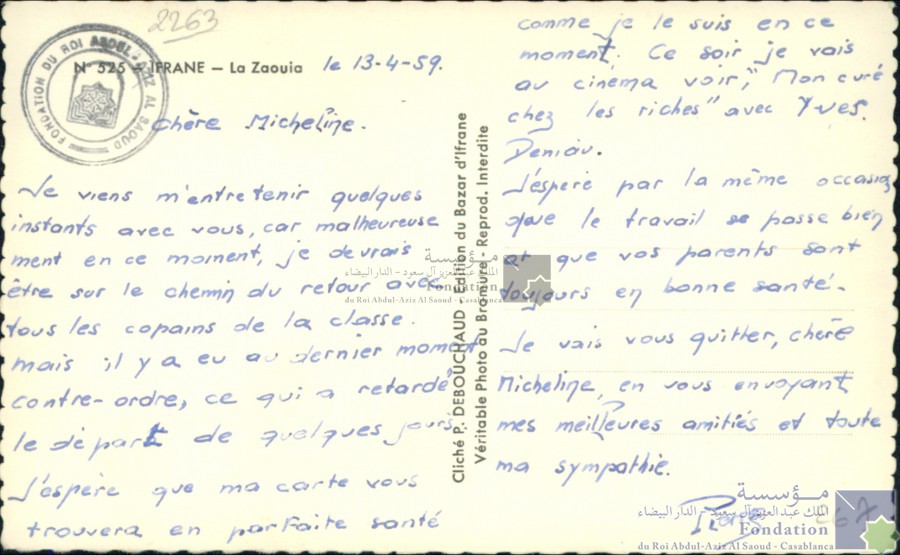 2263
FONDATION DU ROI ABDEL AZIZ AL SAOUD
N° 525 - IFRANE — La Zaouia
le 13-4-59.
Chère Micheline.
Je viens m'entretenir quelques
instants avec vous, car malheureuse
ment en ce moment, je devrais
être sur le chemin du retour avec
tous les copains de la classe.
mais il y a eu au dernier moment
contre-ordre, ce qui a retardé
le départ de quelques jours
J'espère que ma carte vous
trouvera en parfaite santé
Cliché P. DEBOUCHAUD - Edition du Bazar d'Ifrane
Véritable Photo au Bromure - Reprod. Interdite
comme je le suis en ce
moment. Ce soir je vais
au cinema voir, "Mon curé
chez les riches" avec Yves.
Deniau.
J'espère par la même occasion
que le travail se passe bien
et que vos parents sont
toujours en bonne santé.
Je vais vous quitter, chère
Micheline, en vous envoyant
mes meilleures amitiés et toute
ma sympathie.
مؤسسة
الملك عبد العزيز آل سعود - الدار البيضاء
Fondation
du Roi Abdul-Aziz Al Saoud - Casablanca
مؤسسة
الملك عبد العزيز آل سعود - الدار البيضاء
Fondation
du Roi Abdul-Aziz Al Saoud - Casablanca